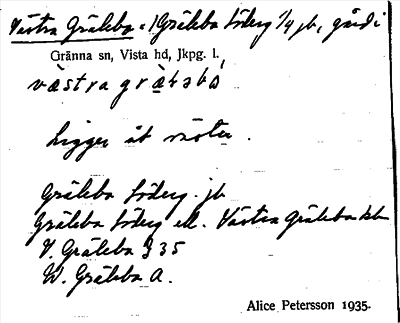 Västra Gräleba = 1 Gräleba Söderg. 1/4 jb, gård i
Gränna sn, Vista hd, Jkpg. l.
Ligger åt väster.
Gräleba Söderg. jb
Gräleba Söderg ell. Västra Gräleba kb
V. Gräleba J 35
W. Gräleba A.
Alice Petersson 1935.